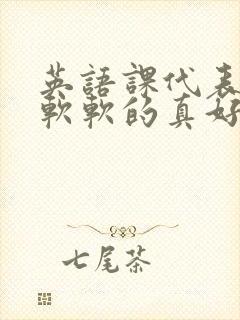 英語課代表
軟軟的真好
七尾茶